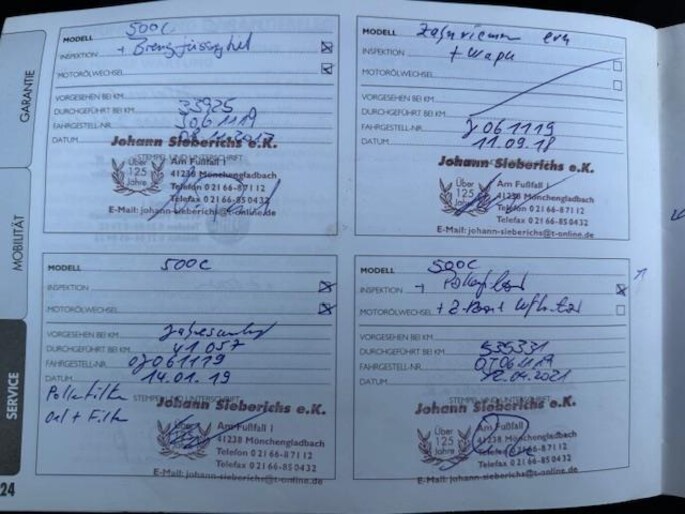 GARANTIE
MOBILITÄT
SERVICE
24
MODELL 500C
INSPEKTION + Bremsflüssigkeit
MOTORÖLWECHSEL
VORGESEHEN BEI KM
DURCHGEFÜHRT BEI KM 33925
FAHRGESTELL-NR. J061119
DATUM 08.11.2017
STEMPEL UND UNTERSCHRIFT
Johann Sieberichs e.K.
Über 125 Jahre
Am Fußfall 1
41238 Mönchengladbach
Telefon 02166-87112
Telefax 02166-850432
E-Mail: johann-sieberichs@t-online.de
MODELL Zahnriemen
INSPEKTION + Wapu
MOTORÖLWECHSEL
VORGESEHEN BEI KM
DURCHGEFÜHRT BEI KM
FAHRGESTELL-NR. J061119
DATUM 11.09.18
Johann Sieberichs e.K.
Über 125 Jahre
Am Fußfall 1
41238 Mönchengladbach
Telefon 02166-87112
Telefax 02166-850432
E-Mail: johann-sieberichs@t-online.de
MODELL 500C
INSPEKTION
MOTORÖLWECHSEL
VORGESEHEN BEI KM
DURCHGEFÜHRT BEI KM 41057
FAHRGESTELL-NR. 0J061119
DATUM 14.01.19
Pollenfilter
Oel + Filter
STEMPEL UND UNTERSCHRIFT
Johann Sieberichs e.K.
Über 125 Jahre
Am Fußfall 1
41238 Mönchengladbach
Telefon 02166-87112
Telefax 02166-850432
E-Mail: johann-sieberichs@t-online.de
MODELL 500C
INSPEKTION +
MOTORÖLWECHSEL +
VORGESEHEN BEI KM
DURCHGEFÜHRT BEI KM
FAHRGESTELL-NR. 0J061119
DATUM 12.04.2021
STEMPEL UND UNTERSCHRIFT
Johann Sieberichs e.K.
Über 125 Jahre
Am Fußfall 1
41238 Mönchengladbach
Telefon 02166-87112
Telefax 02166-850432
E-Mail: johann-sieberichs@t-online.de